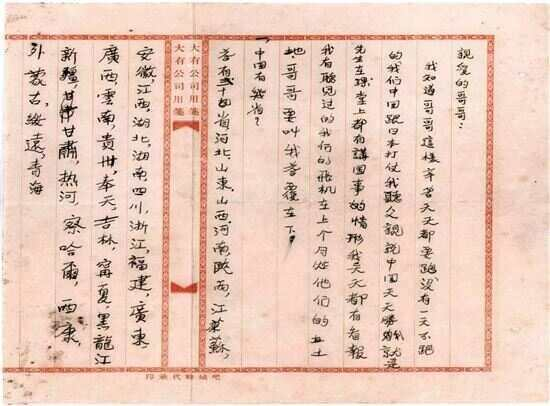 親愛的哥哥：
我知道哥哥這樣辛苦天天都要跑沒有一天不跑
的我們中国跟日本打仗我聽人說說中国天天勝就是
先生在課堂上都有講国事的情形我天天都有看報
我有聽見过的我们的飛机在上个月炸他们的土
地，哥哥要叫我答覆在下。
一中国有幾省？
答有二十四省河北，山東，山西河南，陝西，江蘇，
大有公司用箋
大有公司用箋
安徽，江西，湖北，湖南四川，浙江，福建，廣東，
廣西，雲南，貴州，奉天，吉林，寗夏，黑龍江
新疆，甘肅，热河 察哈爾，西康，
外蒙古，綏遠，青海
代承印